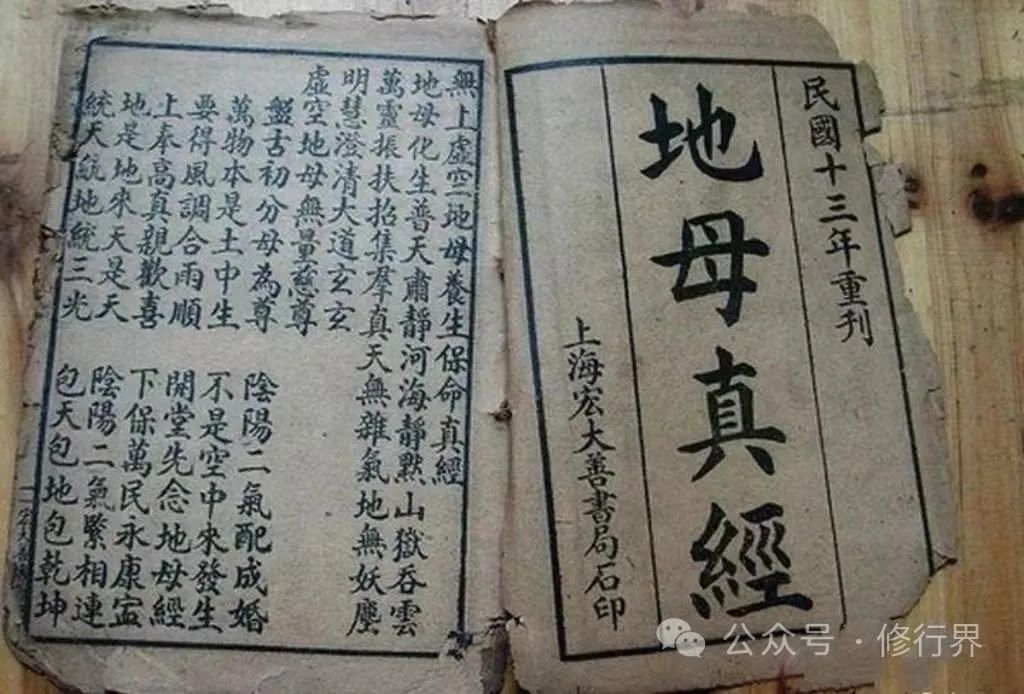 民國十三年重刊
地母真經
上海宏大善書局石印
無上虛空地母養生保命真經
地母化生普天肅靜河海靜默山嶽吞雲
萬靈振扶招集羣真天無雜氣地無妖塵
明慧澄清大道玄玄
虛空地母無量慈尊
盤古初分母為尊 陰陽二氣配成婚
萬物本是土中生 不是空中來發生
要得風調合雨順 開堂先念地母經
上奉高真親歡喜 下保萬民永康寧
地是地來天是天 陰陽二氣緊相連
統天統地統三光 包天包地包乾坤
公众号·修行界